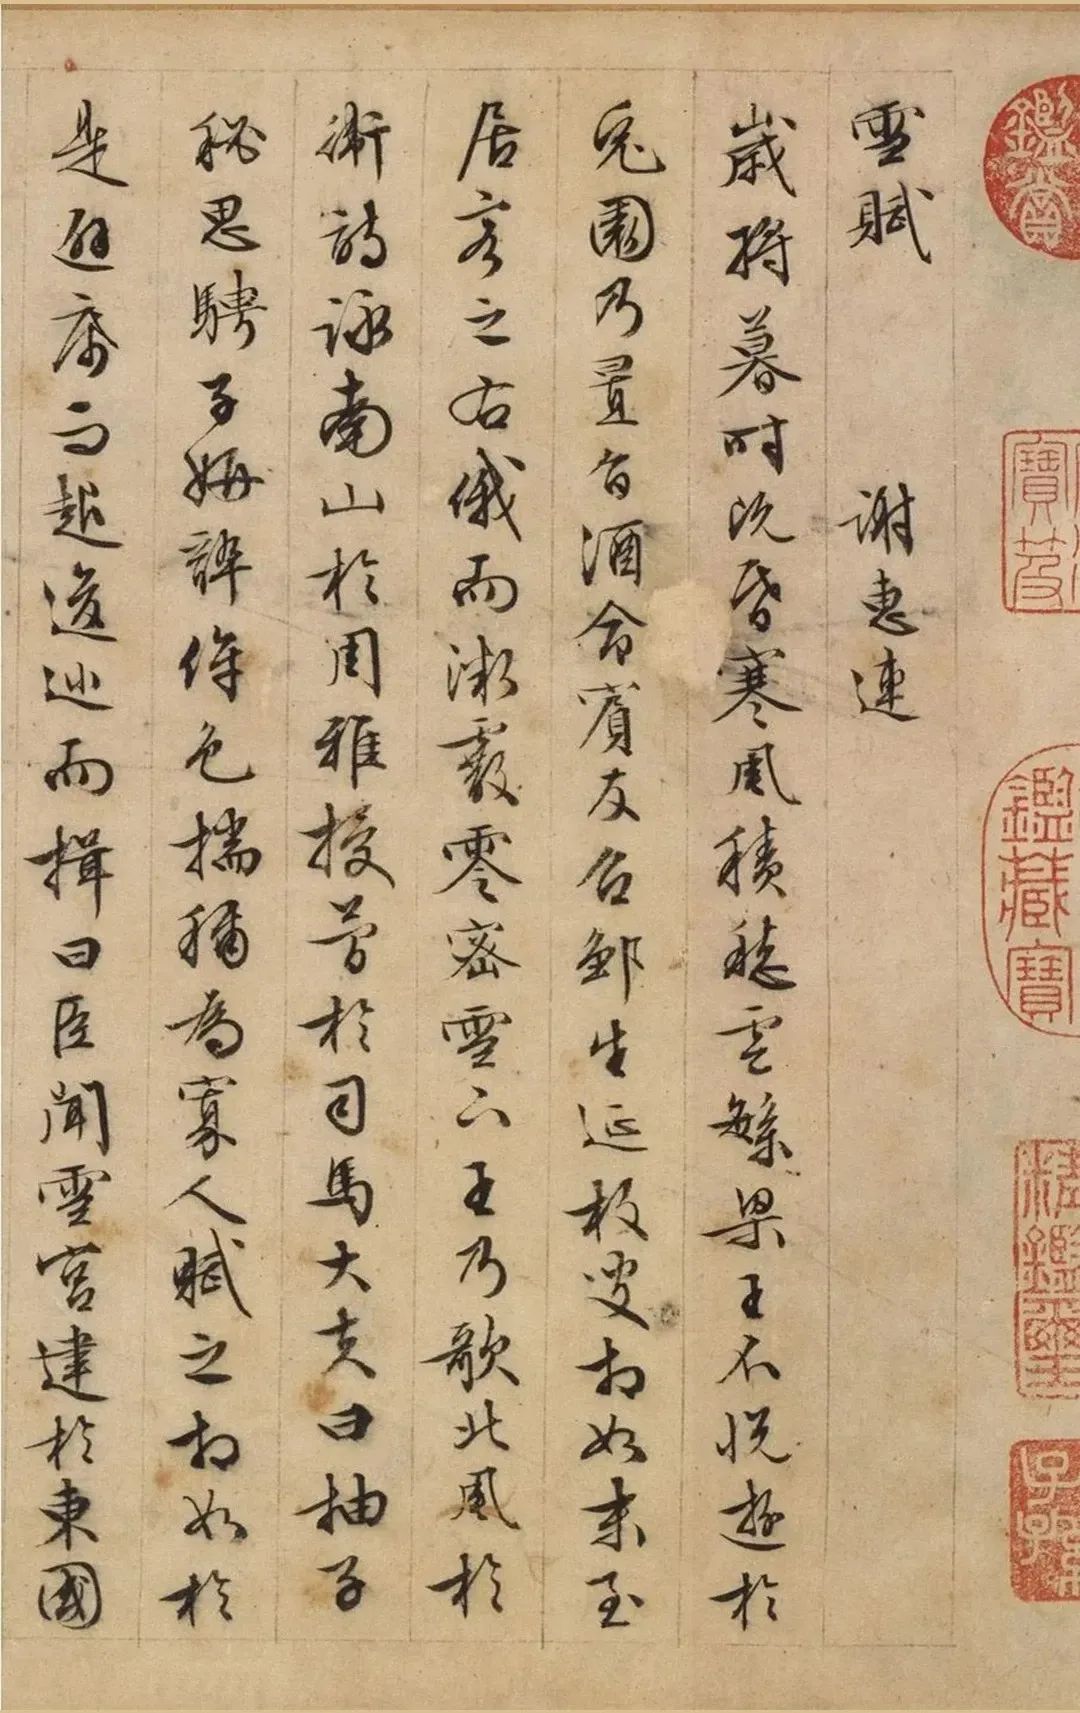 雪賦 謝惠連
歲將暮時既昏寒風積愁雲繁梁王不悦遊於
兔園乃置旨酒命賓友召鄒生延枚叟相如末至
居客之右俄而微霰零密雪下王乃歌北風於
衛詩詠南山於周雅授簡於司馬大夫曰抽子
秘思騁子妍辭侔色揣稱為寡人賦之相如於
是避席而起逡巡而揖曰臣聞雪宮建於東國
鑑賞
寶笈
鑑藏寶
精鑑璽